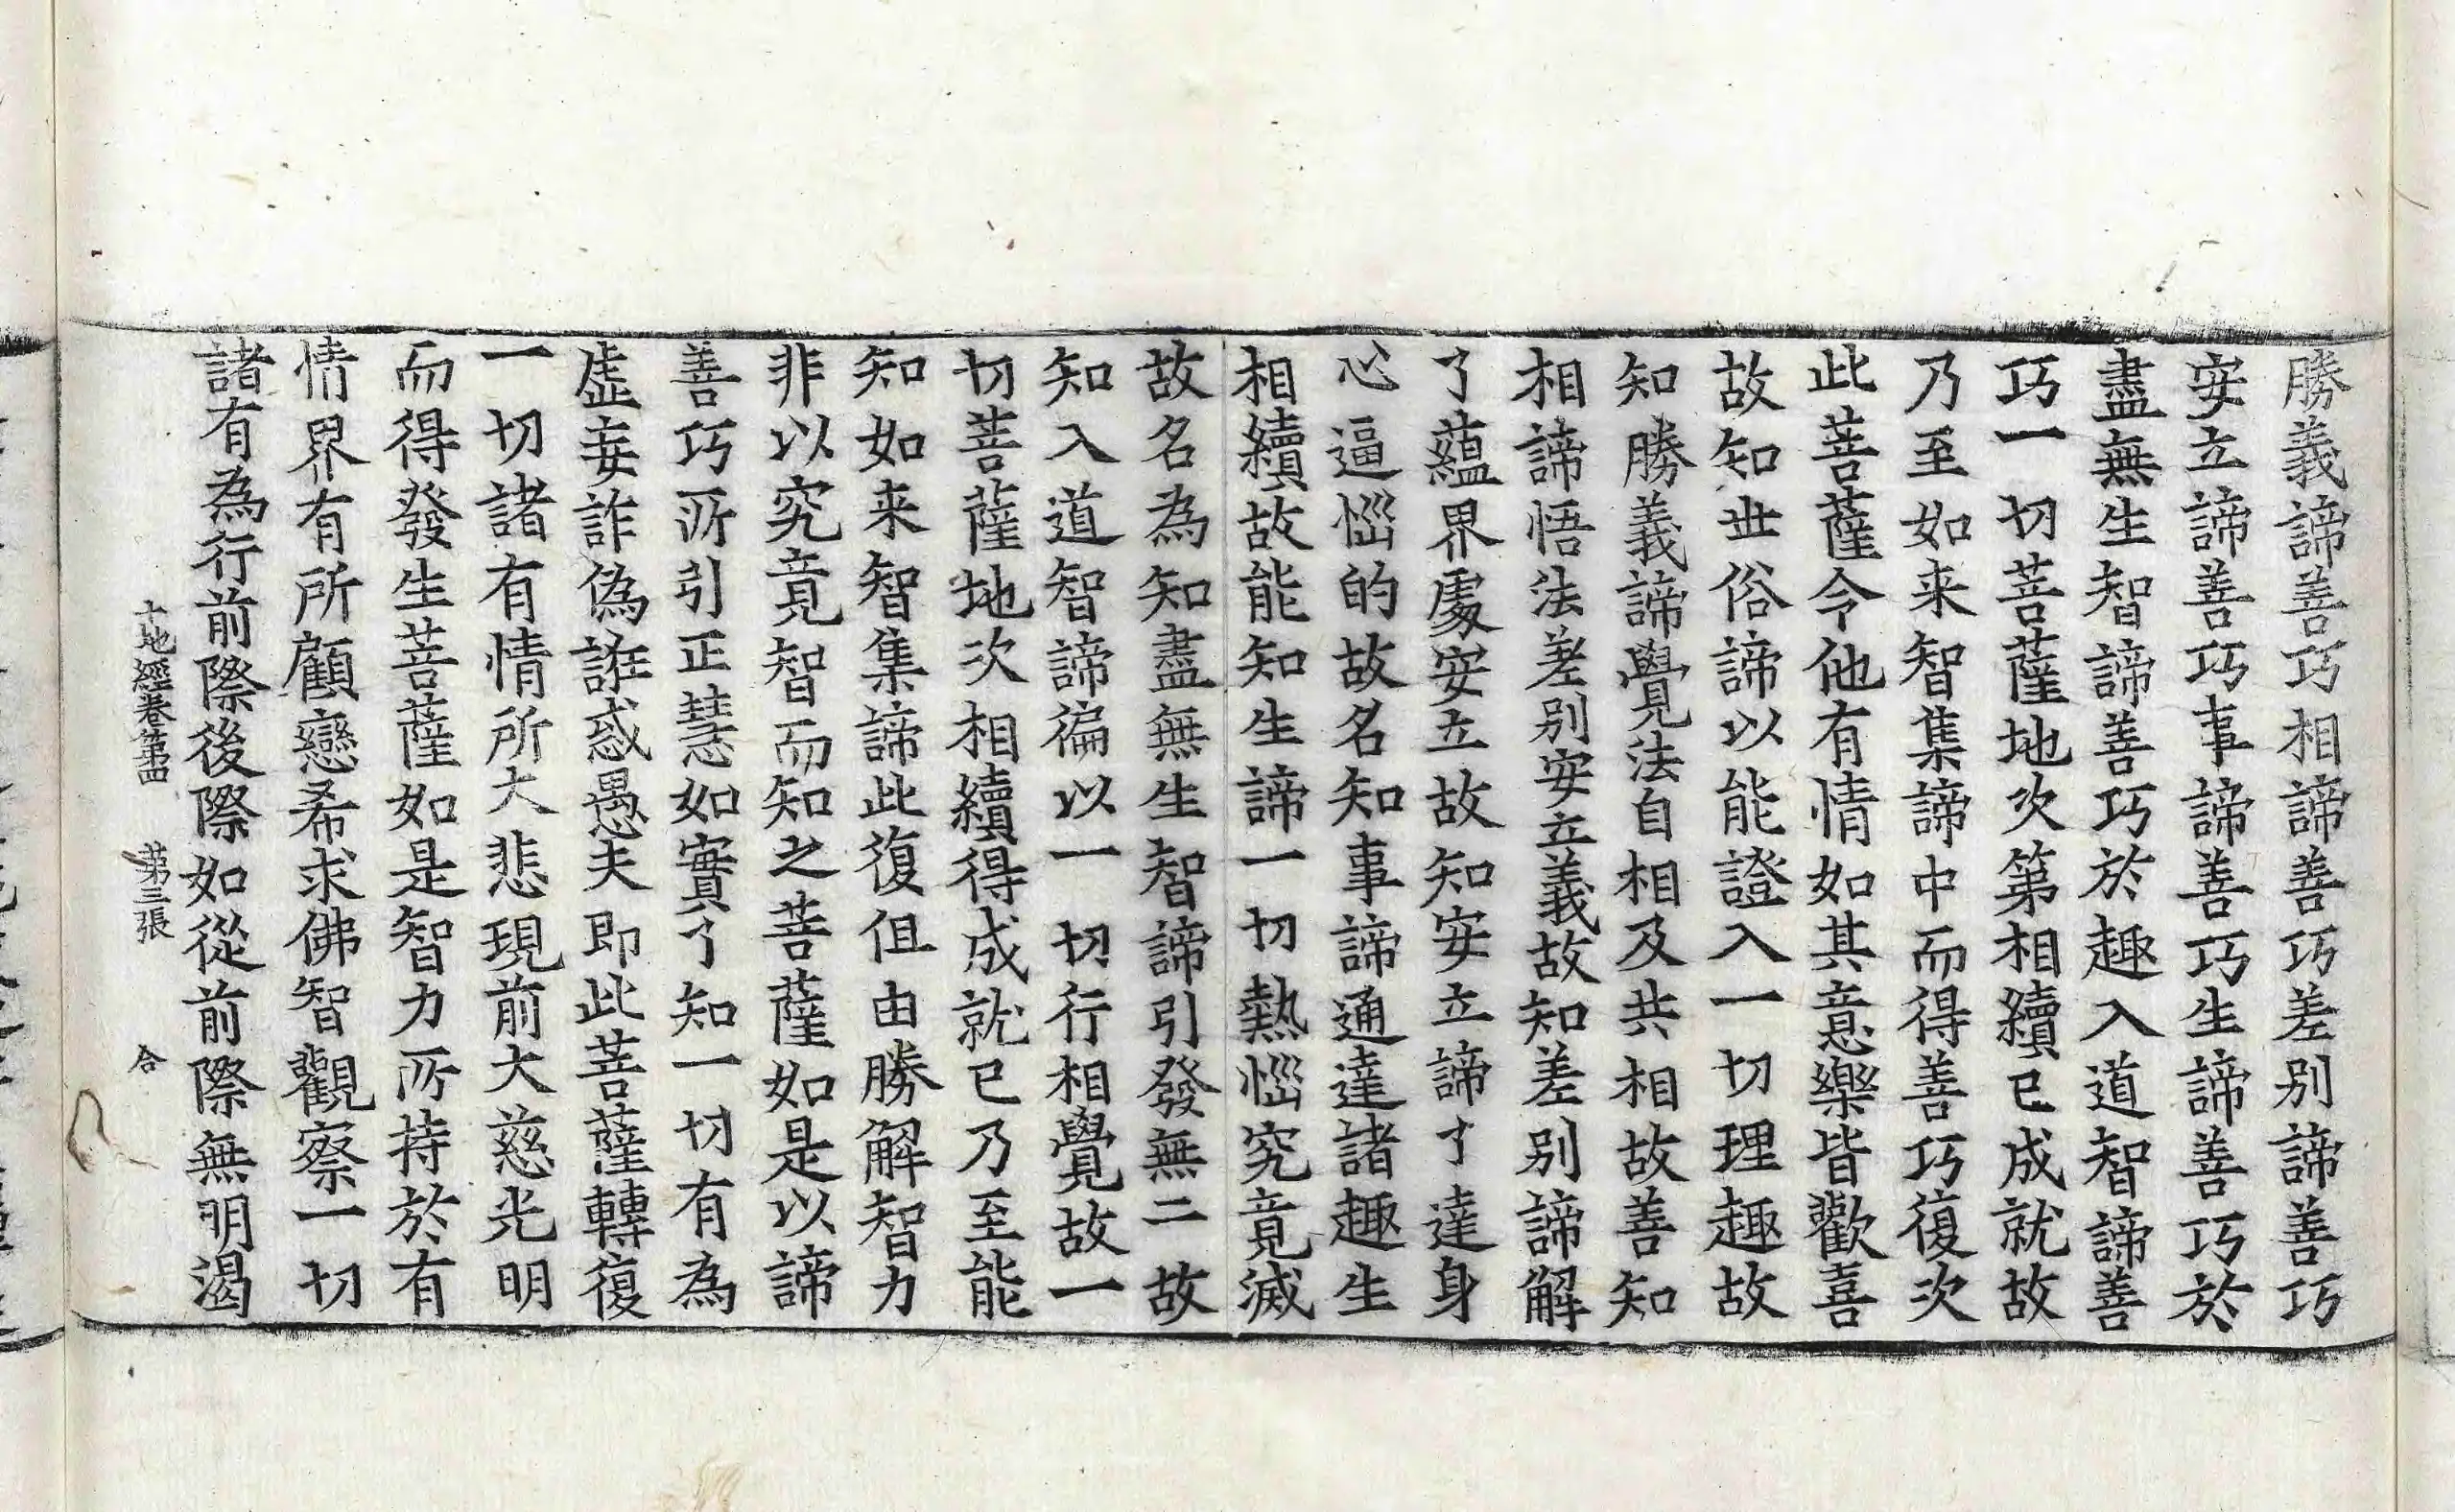 勝義諦善巧相諦善巧差別諦善巧
安立諦善巧事諦善巧生諦善巧於
盡無生智諦善巧於趣入道智諦善
巧一切菩薩地次第相續已成就故
乃至如来智集諦中而得善巧復次
此菩薩令他有情如其意樂皆歡喜
故知世俗諦以能證入一切理趣故
知勝義諦覺法自相及共相故善知
相諦悟法差別安立義故知差別諦解
了蘊界處安立故知安立諦了達身
心逼惱的故名知事諦通達諸趣生
相續故能知生諦一切熱惱究竟滅
故名為知盡無生智諦引發無二故
知入道智諦徧以一切行相覺故一
切菩薩地次相續得成就已乃至能
知如来智集諦此復但由勝解智力
非以究竟智而知之菩薩如是以諦
善巧所引正慧如實了知一切有為
虛妄詐偽誑惑愚夫即此菩薩轉復
一切諸有情所大悲現前大慈光明
而得發生菩薩如是智力所持於有
情界有所顧戀希求佛智觀察一切
諸有為行前際後際如從前際無明渴
十地經卷第四 第三張 合